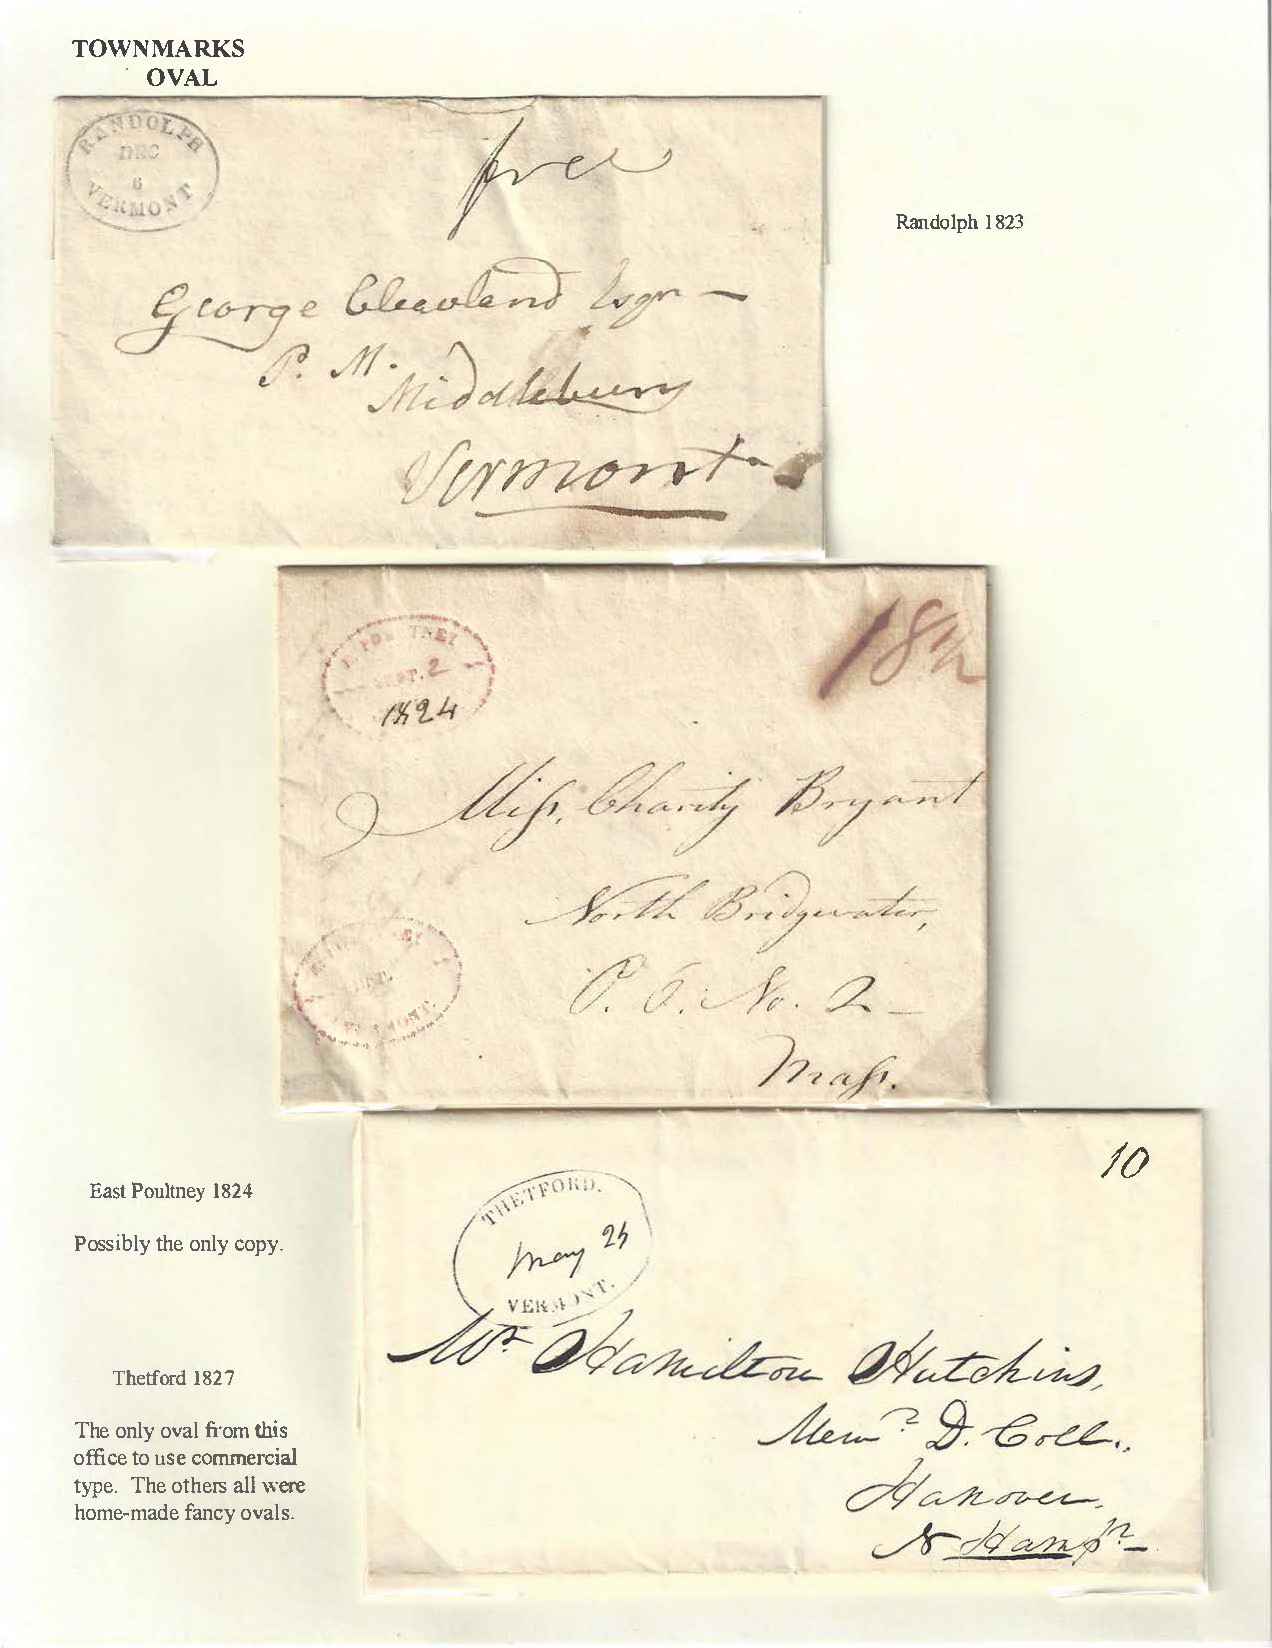 TOWNMARKS
OVAL
RANDOLPH
DEC
6
VERMONT
free
Randolph 1823
George Cleaveland Esqr
P. M.
Middlebury
Vermont
SEPT. 2
1824
18½
Miss, Charity Bryant
North Bridgewater,
P. O. No. 2
VERMONT.
Mass.
10
THETFORD.
May
VERMONT.
East Poultney 1824
Possibly the only copy.
Mr. Hamilton Hutchins,
Thetford 1827
D. Coll.,
The only oval from this
office to use commercial
type. The others all were
home-made fancy ovals.
Hanover,
N Hampr.